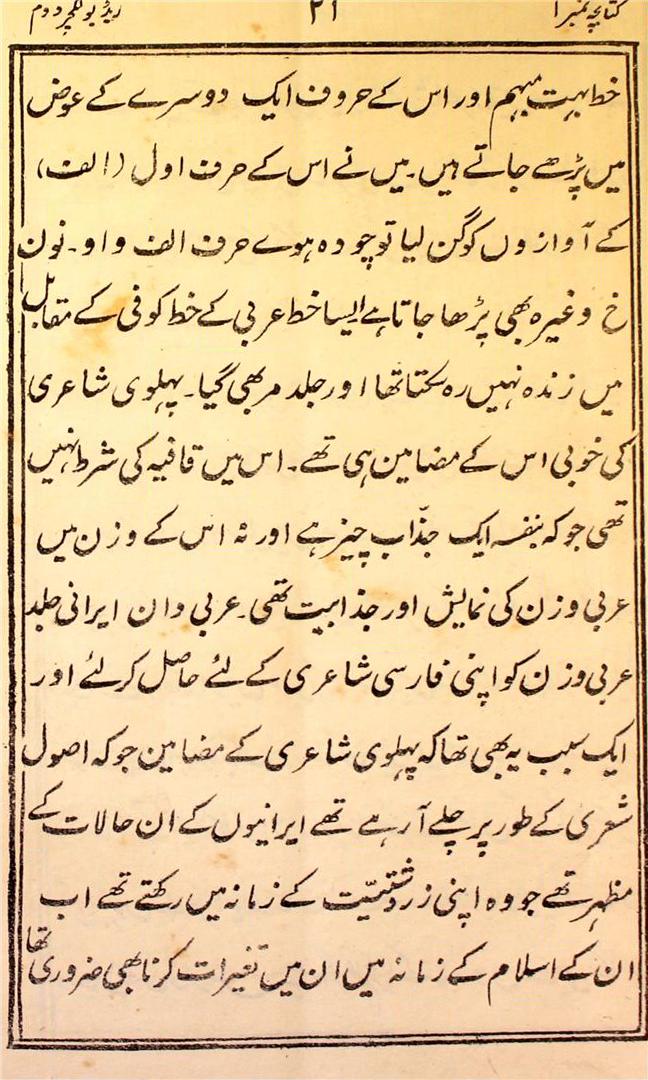 کتابچہ نمبر ۱ ۲۱ ریڈیو لکچر دوم
خط بہت مبہم اور اس کے حروف ایک دوسرے کے عوض
میں پڑھے جاتے ہیں۔ میں نے اس کے حرف اول (الف)
کے آوازوں کو گن لیا تو چودہ ہوے حرف الف واو۔ نون
خ وغیرہ بھی پڑھا جاتا ہے ایسا خط عربی کے خط کوفی کے مقابل
میں زندہ نہیں رہ سکتا تھا اور جلد مر بھی گیا۔ پہلوی شاعری
کی خوبی اس کے مضامین ہی تھے۔ اس میں قافیہ کی شرط نہیں
تھی جو کہ بنفسہ ایک جذّاب چیز ہے اور نہ اس کے وزن میں
عربی وزن کی نمایش اور جذابیت تھی۔ عربی وان ایرانی جلد
عربی وزن کو اپنی فارسی شاعری کے لئے حاصل کر لئے اور
ایک سبب یہ بھی تھا کہ پہلوی شاعری کے مضامین جو کہ اصول
شعری کے طور پر چلے آ رہے تھے ایرانیوں کے ان حالات کے
مظہر تھے جو وہ اپنی زردشتیّت کے زمانہ میں رکھتے تھے اب
ان کے اسلام کے زمانہ میں ان میں تغیرات کرنا بھی ضروری تھا